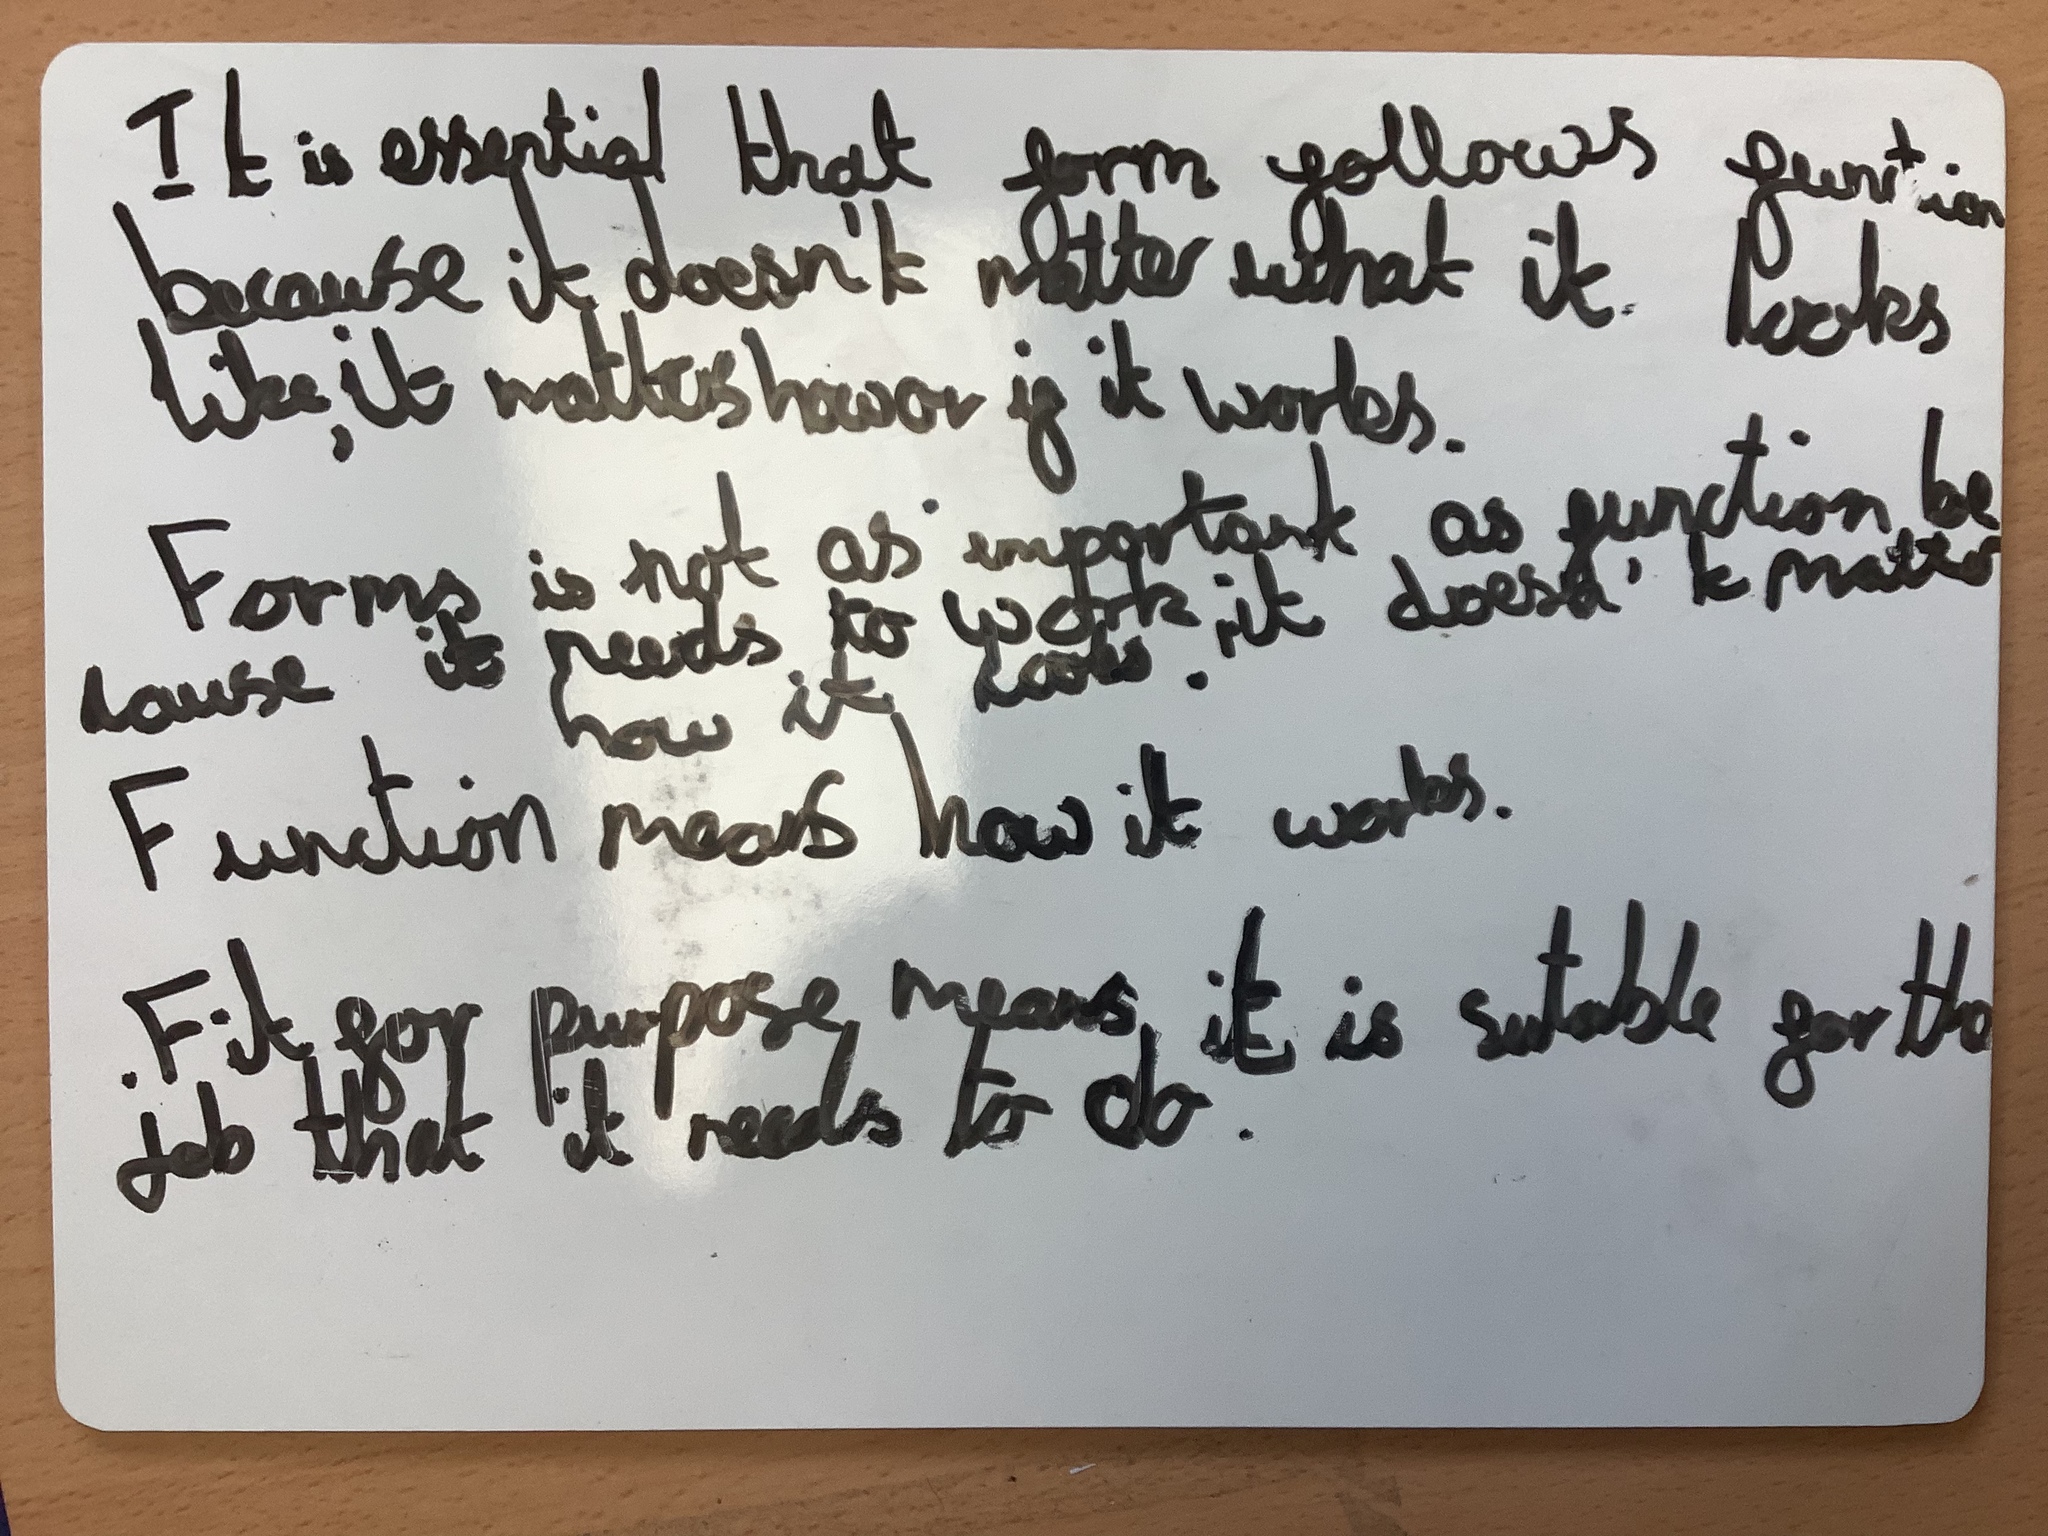 It is essential that form follows funtion
because it doesn't matter what it looks
like, it matters howor if it works.
Forms is not as important as function be
cause it needs to work, it doesn't matter
how it looks.
Function means how it works.
Fit for purpose means it is sutable for the
job that it needs to do.